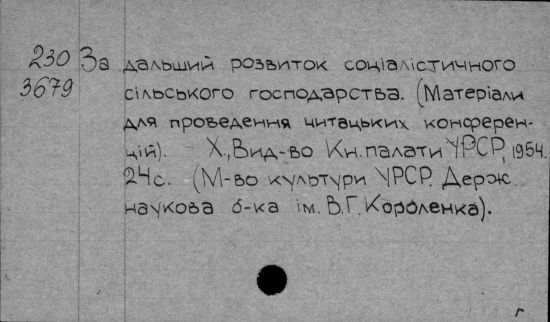 230 За дальший розвиток соціалістичного
3679 сільського господарства. (Матеріали
для проведення читацьких конферен-
цій). Х., Вид-во Кн. палати УРСР, 1954.
24с. (М-во культури УРСР. Держ.
наукова б-ка ім. В.Г. Короленка).
г